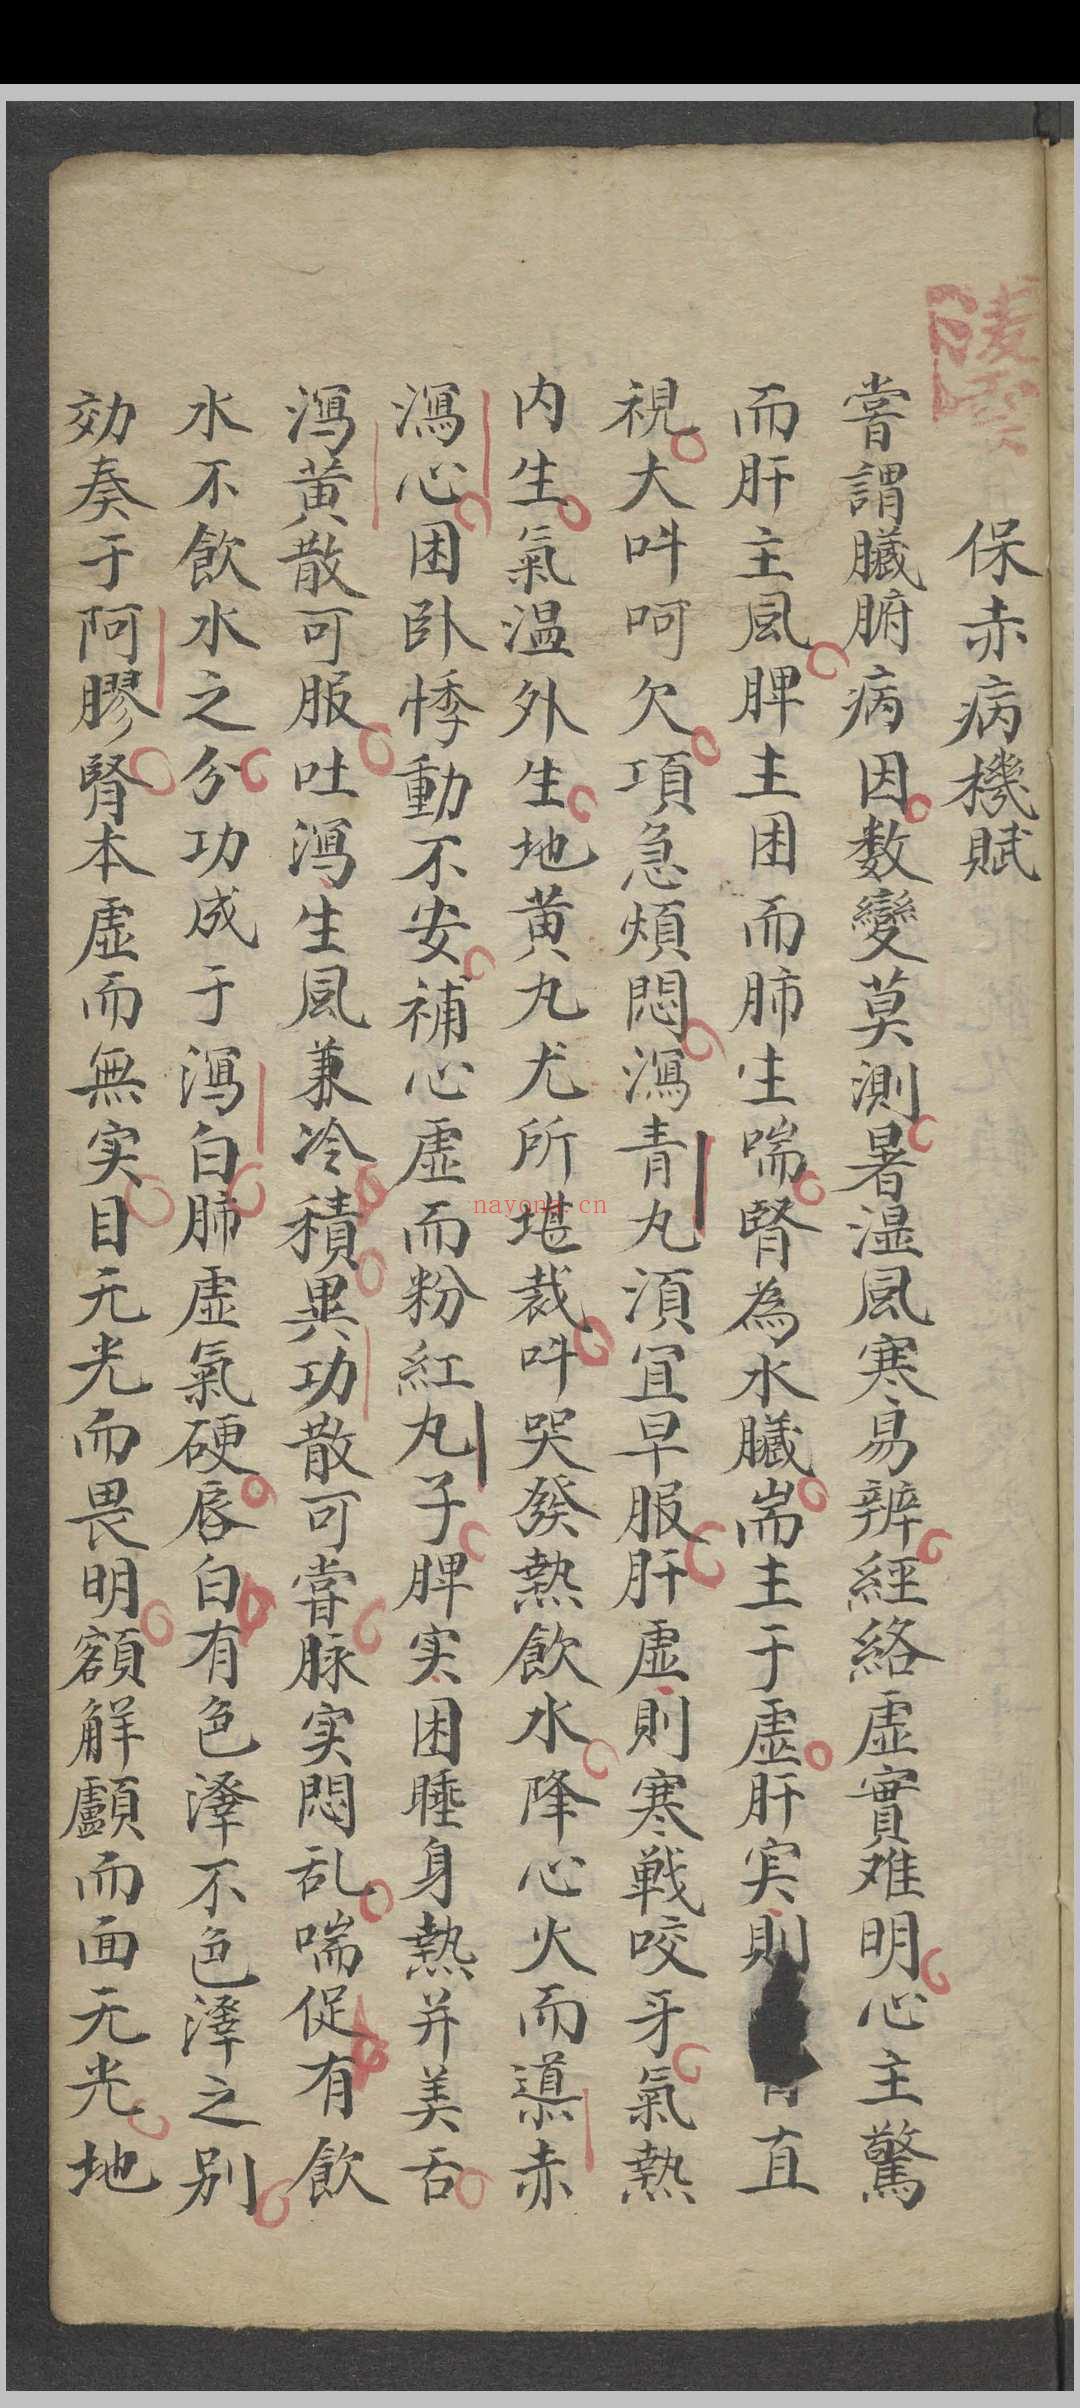 保赤病機賦
嘗謂臟腑病因数變莫測暑湿風寒易辨經絡虚實难明心主驚
而肝主風脾主困而肺生喘腎為水臟耑主于虚肝实則直
視大呌呵欠項急煩悶瀉青丸湏宜早服肝虚則寒戰咬牙氣熱
内生氣温外生地黄丸尤所堪裁呌哭發熱飲水降心火而導赤
瀉心困卧悸動不安補心虚而粉紅丸子脾实困睡身熱并美舌
瀉黄散可服吐瀉生風兼冷積異功散可嘗脉实悶乱喘促有飲
水不飲水之分功成于瀉白肺虚氣硬唇白有色澤不色澤之别
効奏于阿膠腎本虚而無实目无光而畏明額解顱而面无光地
nayona.cn